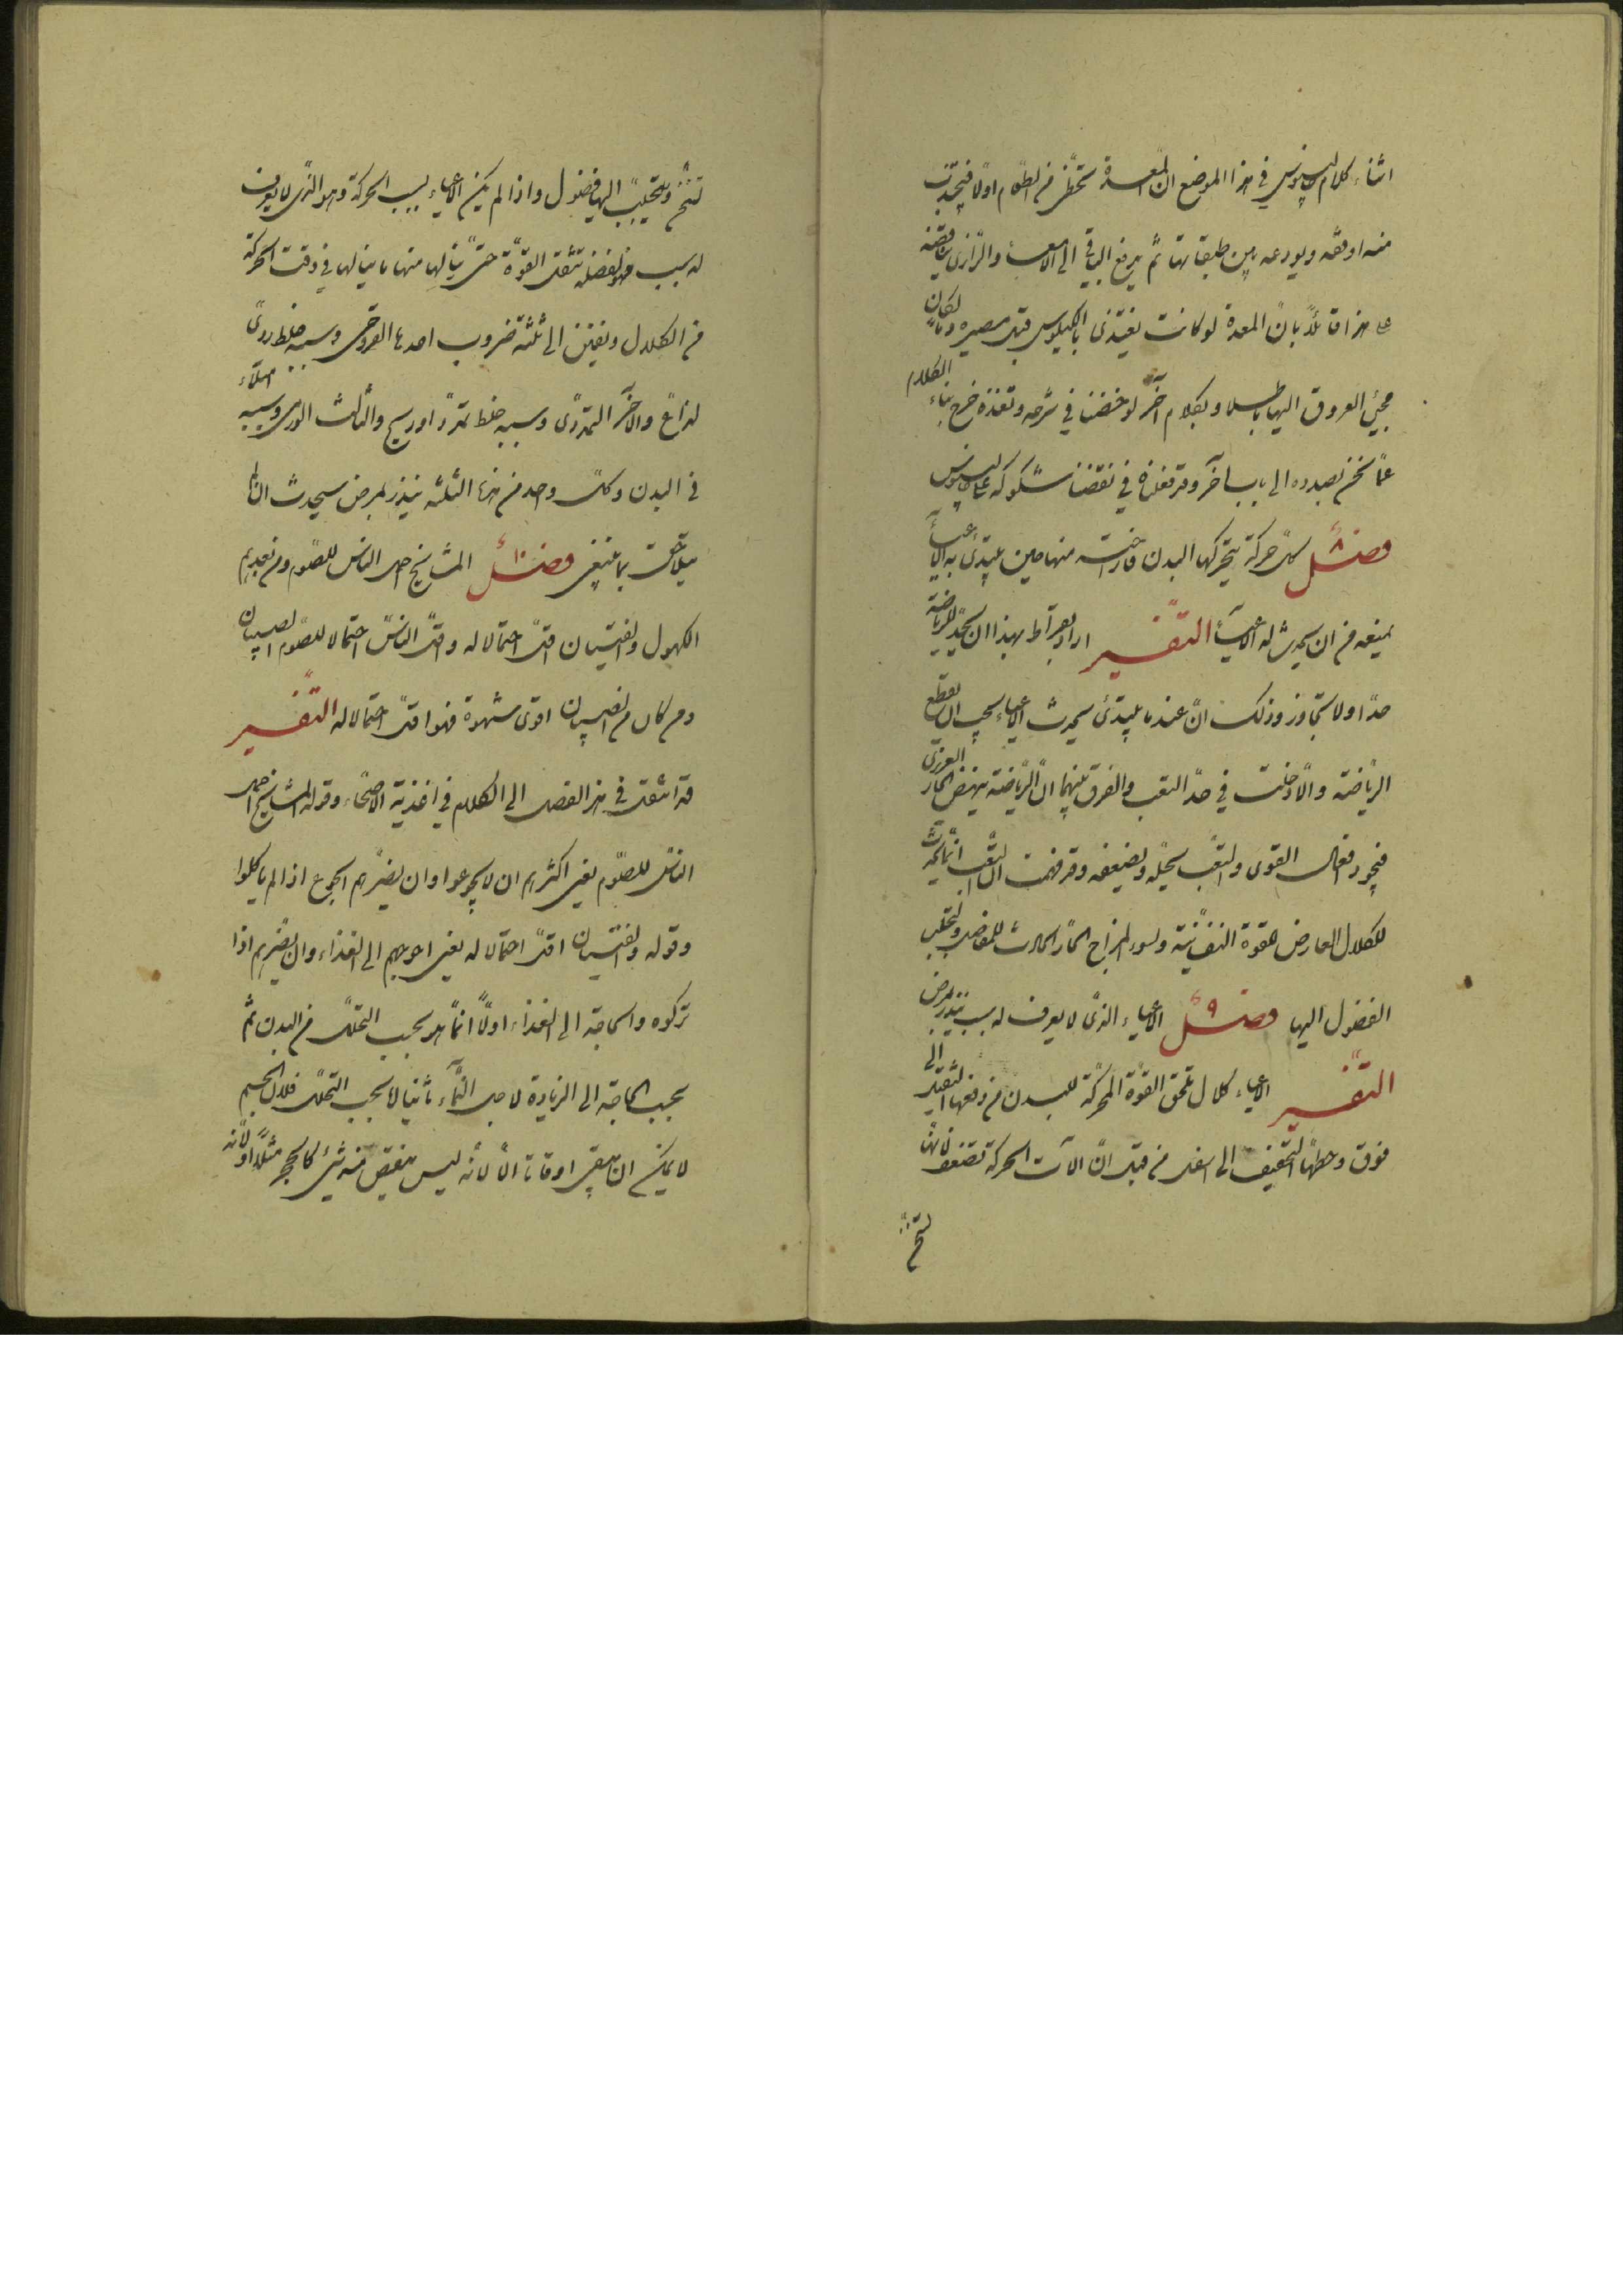 اثناء كلام جالينوس في هذا الموضع ان المعدة تحظى من الطعام اولا فيجتذب
منه اوفقه ويودعه بين طبقاتها ثم يدفع الباقي الى الامعاء والرازي يناقضه
على هذا قائلا بان المعدة لو كانت تغتذي بالكيلوس قبل مصيره دما لكان
مجيئ العروق اليها باطلا وبكلام آخر لو خضنا في شرحه ونقضه خرج بنا الكلام
عما نحن بصدده الى باب آخر وقد فعلناه في نقضنا شكوكه على جالينوس
فصل ٨ كل حركة يتحركها البدن فاراحته منها حين يبتدئ به الاعياء
يمنعه من ان يحدث له الاعياء التفسير اراد بقراط بهذا ان يحد للرياضة
حدا ولا يتجاوز وذلك ان عند ما يبتدئ يحدث الاعياء يجب ان يقطع
الرياضة والا دخلت في حد التعب والفرق بينهما ان الرياضة ينهض الحار الغريزي
فيجود افعال القوى والتعب يحلله ويضعفه وقد فهمت ان التعب انما يحدث
للكلال العارض للقوة النفسانية ولسوء المزاج الحار الحادث للمفاصل وتحلب
الفضول اليها فصل ٩ الاعياء الذي لا يعرف له سبب ينذر بمرض
التفسير الاعياء كلال يلحق القوة المحركة للبدن من دفعها الثقيل الى
فوق وحطها الخفيف الى اسفل من قبل ان آلات الحركة تضعف لانها
تسخن
تسخن ويتحلب اليها فضول واذا لم يكن الاعياء بسبب الحركة وهو الذي لا يعرف
له سبب فهو لفضلة تثقل القوة حتى ينالها منها ما ينالها في وقت الحركة
من الكلال ويفتن الى ثلثة ضروب احدها القروحي وسببه خلط ردي
لذاع والآخر التمددي وسببه خلط تمدد او ريح والثالث الورمي وسببه امتلاء
في البدن وكل واحد من هذه الثلثة ينذر بمرض سيحدث ان لم
يلاحق بما ينبغي فصل ١٠ المشايخ احمل الناس للصوم ومن بعدهم
الكهول والفتيان اقل احتمالا له واقل الناس احتمالا للصوم الصبيان
ومن كان من الصبيان اقوى شهوة فهو اقل احتمالا له التفسير
قد انتقل في هذا الفصل الى الكلام في اغذية الاصحاء وقوله المشايخ احمل
الناس للصوم يعني اكثرهم ان لا يجوعوا وان يضرهم الجوع اذا لم ياكلوا
وقوله والفتيان اقل احتمالا له يعني احوجهم الى الغذاء وان يضرهم اذا
تركوه والحاجة الى الغذاء اولا انما هو بحسب التحلل من البدن ثم
بحسب الحاجة الى الزيادة لاجل النماء ثانيا لا بحسب التحلل فلان الجسم
لا يمكن ان يبقى اوقاتا الا لانه ليس ينقص منه شيئ كالحجر مثلا او لانه